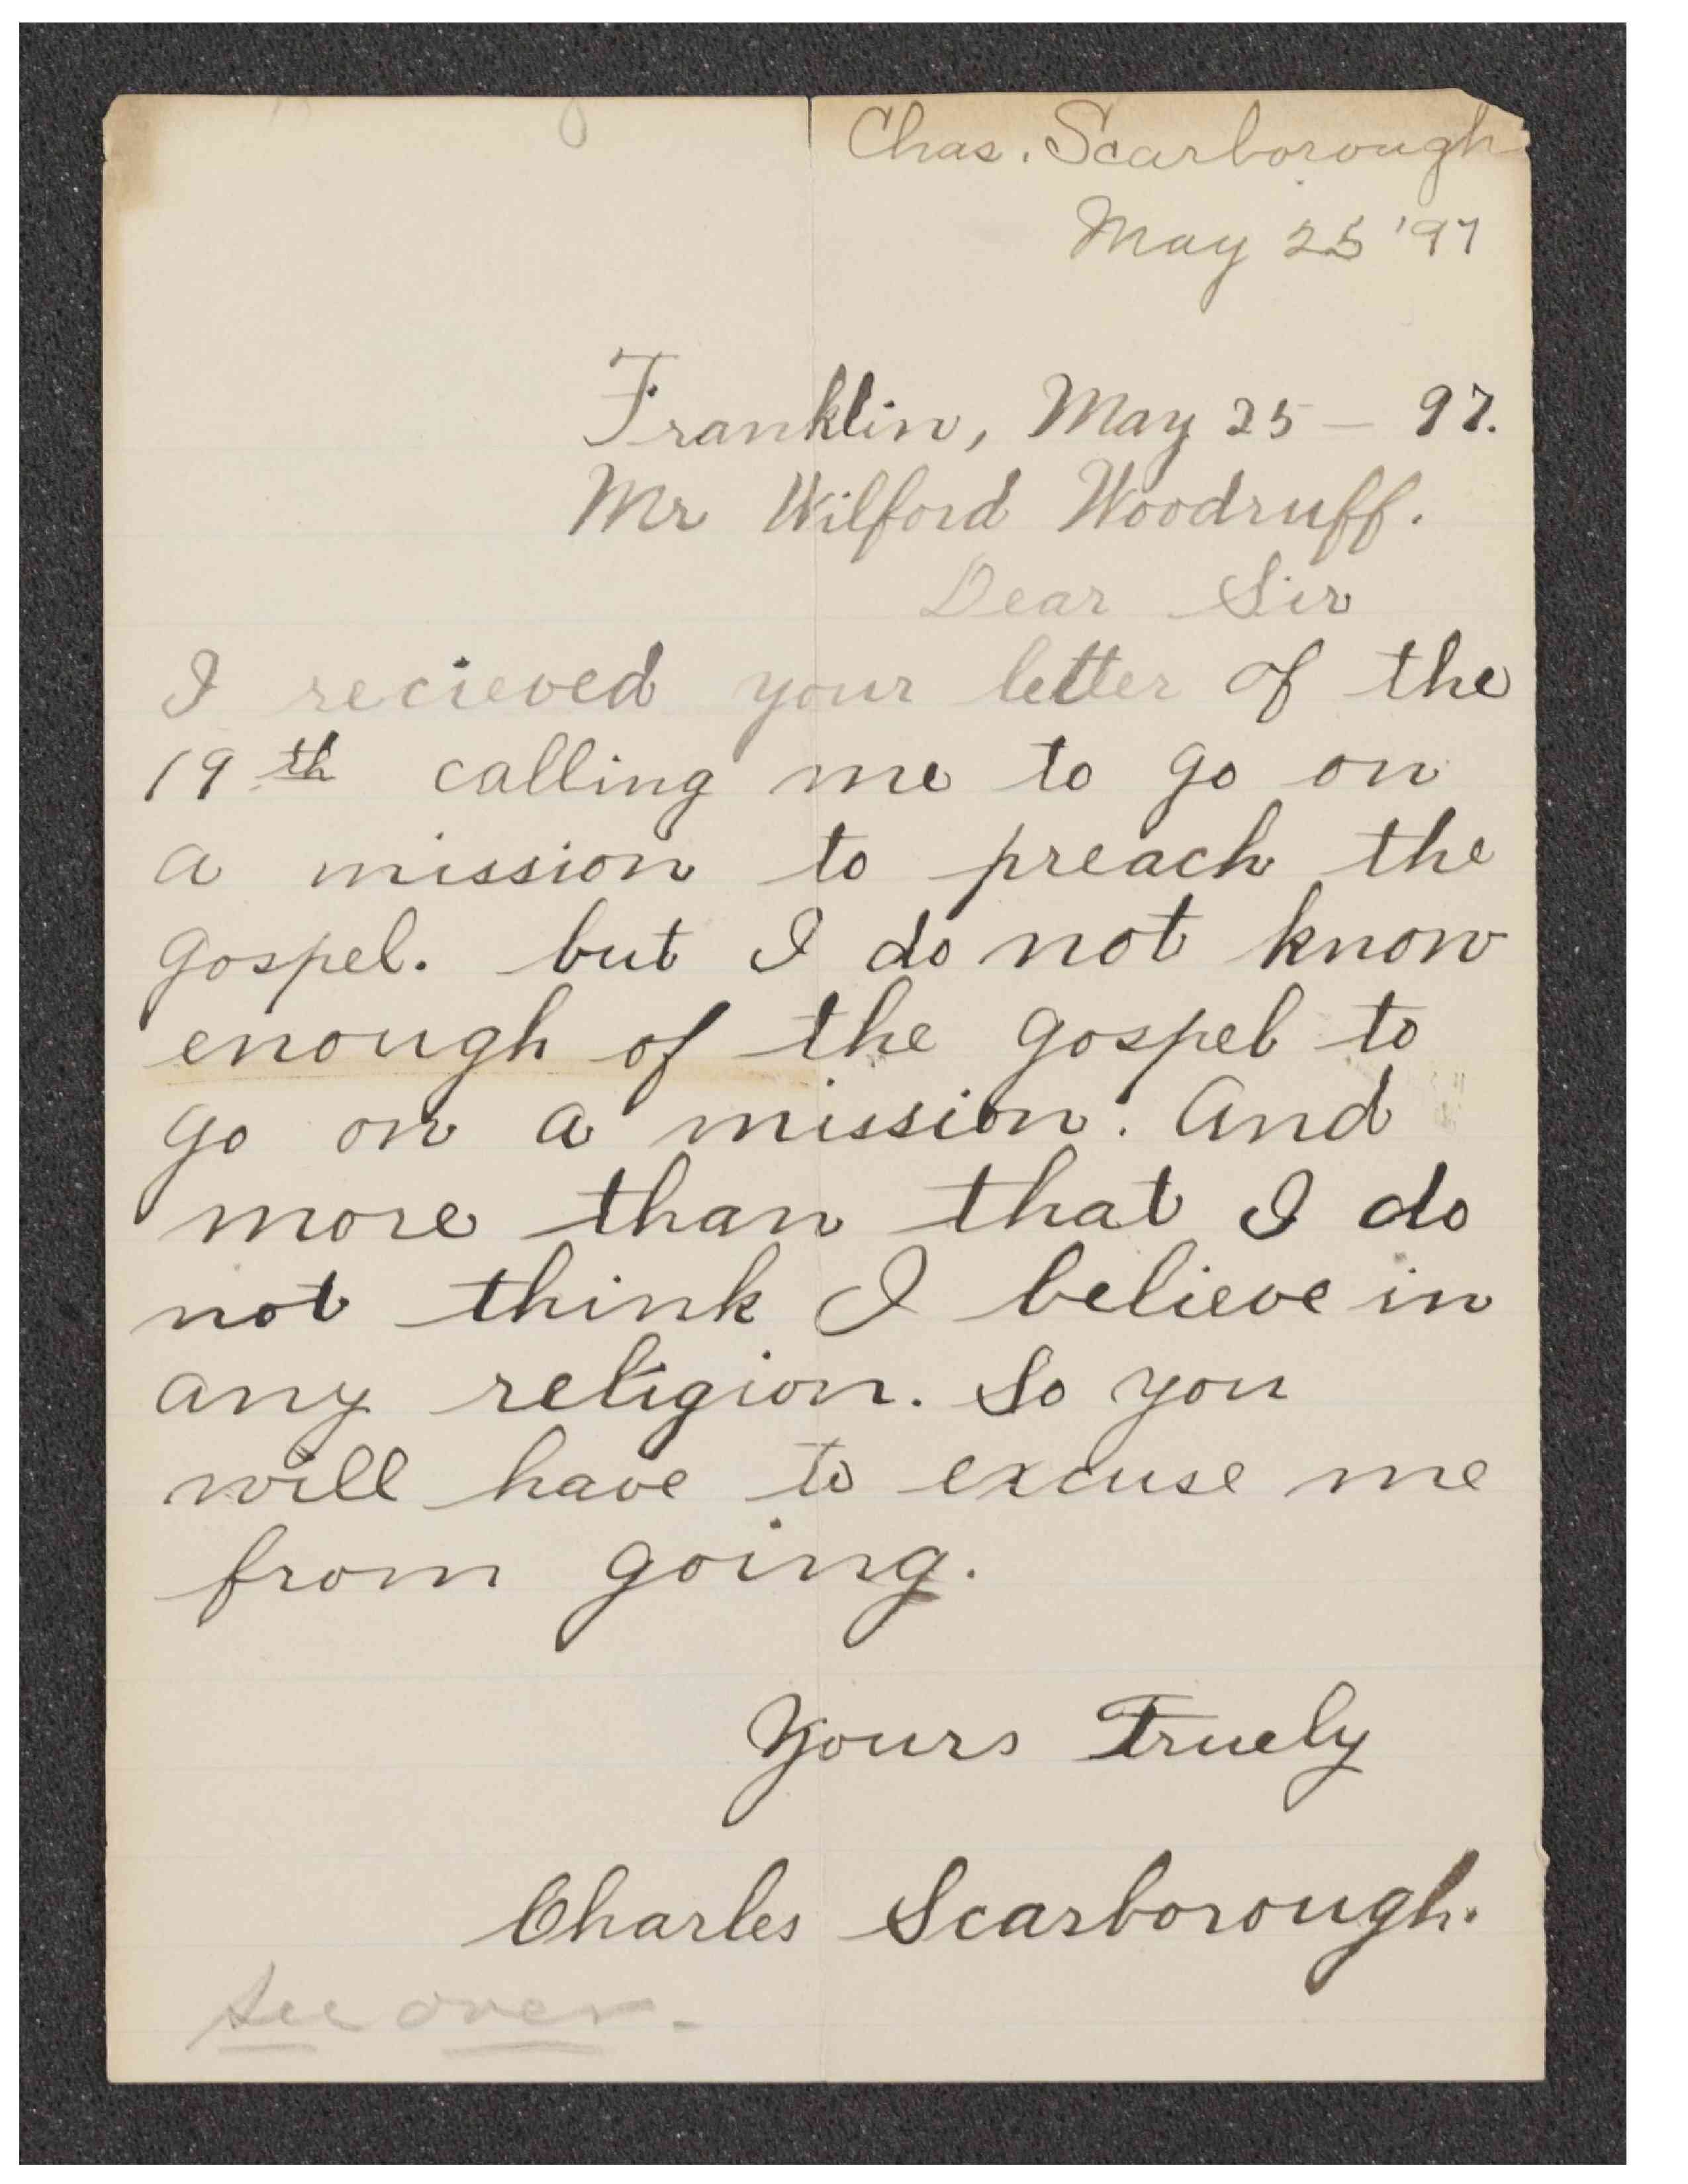 Chas. Scarborough
May 25 '97
Franklin, May 25 – 97.
Mr Wilford Woodruff.
Dear Sir
I recieved your letter of the
19th calling me to go on
a mission to preach the
gospel. but I do not know
enough of the gospel to
go on a mission. And
more than that I do
not think I believe in
any religion. So you
will have to excuse me
from going.
Yours Truely
Charles Scarborough.
See over.